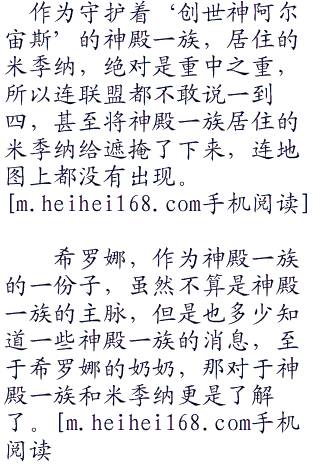 作为守护着‘创世神阿尔
宙斯’的神殿一族，居住的
米季纳，绝对是重中之重，
所以连联盟都不敢说一到
四，甚至将神殿一族居住的
米季纳给遮掩了下来，连地
图上都没有出现。
[m.heihei168.com手机阅读]
希罗娜，作为神殿一族
的一份子，虽然不算是神殿
一族的主脉，但是也多少知
道一些神殿一族的消息，至
于希罗娜的奶奶，那对于神
殿一族和米季纳更是了解
了。[m.heihei168.com手机
阅读